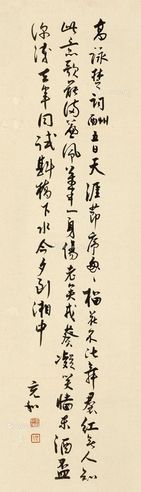 高詠楚詞酬五日天涯節序匆匆榴花不似舞裙紅無人知
此意歌罷滿簾風萬事一身傷老矣戎葵凝笑牆東酒盃
深淺去年同試澆橋下水今夕到湘中
充和